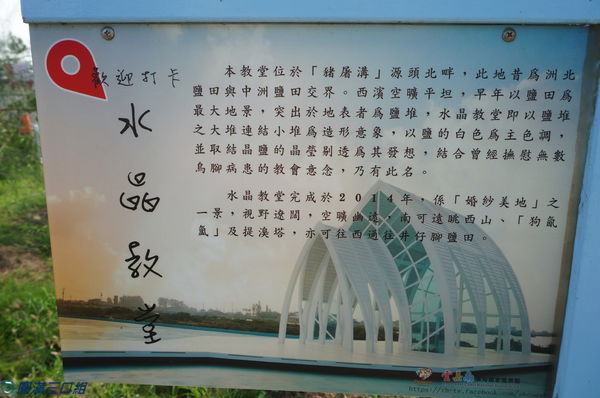 歡迎打卡
水晶教堂
本教堂位於「豬屠溝」源頭北畔，此地昔為洲北
鹽田與中洲鹽田交界。西濱空曠平坦，早年以鹽田為
最大地景，突出於地表者為鹽堆，水晶教堂即以鹽堆
之大堆連結小堆為造形意象，以鹽的白色為主色調，
並取結晶鹽的晶瑩剔透為其發想，結合曾經撫慰無數
烏腳病患的教會意念，乃有此名。
水晶教堂完成於2014年，係「婚紗美地」之
一景，視野遼闊，空曠幽遠，南可遠眺西山、「狗氤
氳」及提溪塔，亦可往西通往井仔腳鹽田。